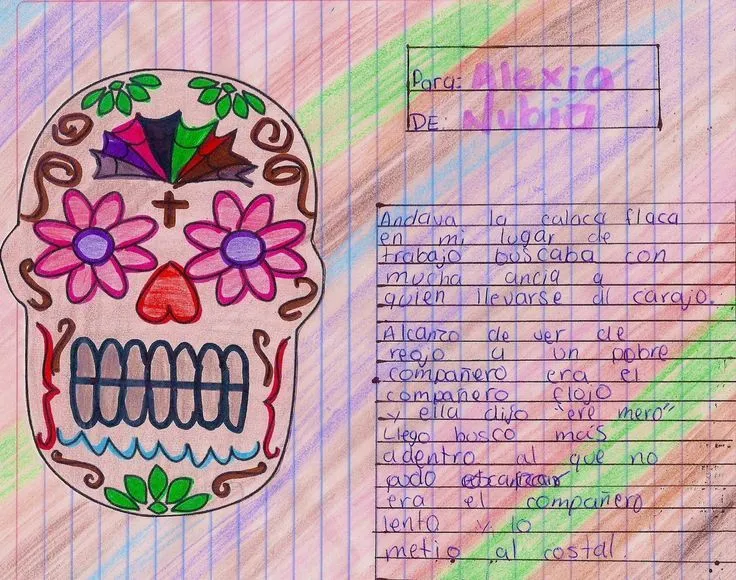 Para: Alexia
DE: Nubia
Andava la calaca flaca
en mi lugar de
trabajo buscaba con
mucha ancia a
quien llevarse al carajo.
Alcanzo de ver de
reojo a un pobre
compañero era el
compañero flojo
y ella dijo "ere mero"
Llego busco mais
adentro al que no
pudo
era el compañero
lento y lo
metio al costal.